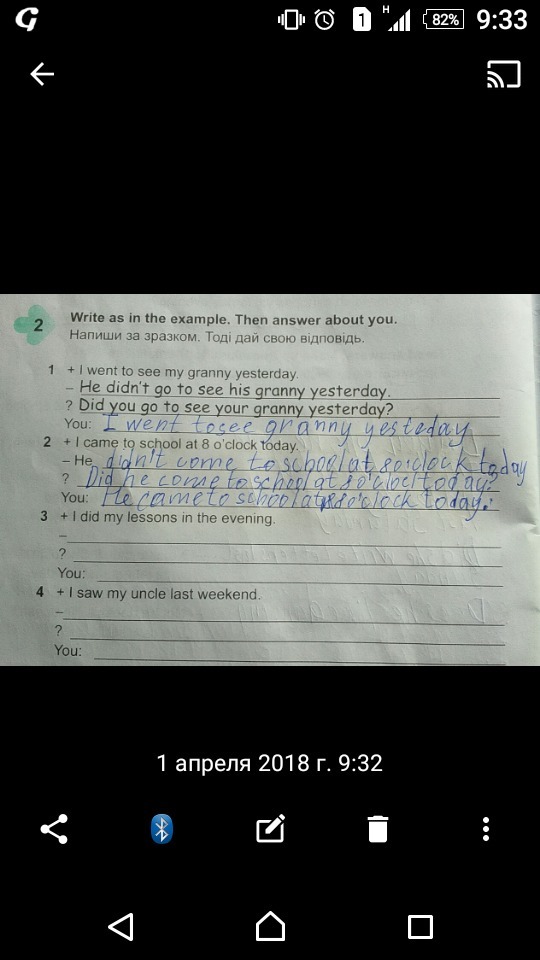 G 1 H 82% 9:33
2 Write as in the example. Then answer about you.
Напиши за зразком. Тоді дай свою відповідь.
1 + I went to see my granny yesterday.
– He didn't go to see his granny yesterday.
? Did you go to see your granny yesterday?
You: I went to see granny yesteday
2 + I came to school at 8 o'clock today.
– He didn't come to school at 8 o'clock today
? Did he come to school at 8 o'cloc today?
You: He came to school at 8 o'clock today.
3 + I did my lessons in the evening.
–
?
You:
4 + I saw my uncle last weekend.
–
?
You:
1 апреля 2018 г. 9:32